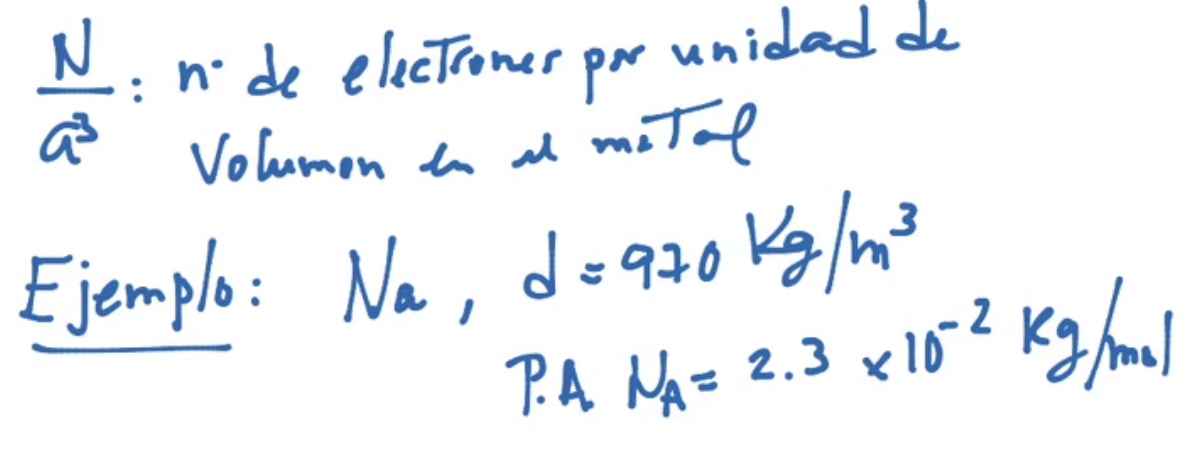 N/a³ : nº de electrones por unidad de
Volumen en el metal
Ejemplo: Na, d = 970 Kg/m³
P.A. NA = 2.3 x10⁻² Kg/mol